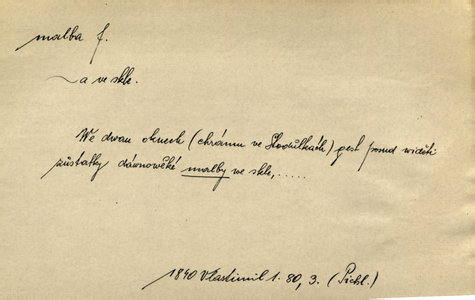 malba f.
~a ve skle.
We dwou oknech (chrámu ve Stodůlkách) gest posud widěti
zůstatky dáwnowěké malby we skle, .....
1840 Vlastimil 1. 80, 3. (Pichl.)